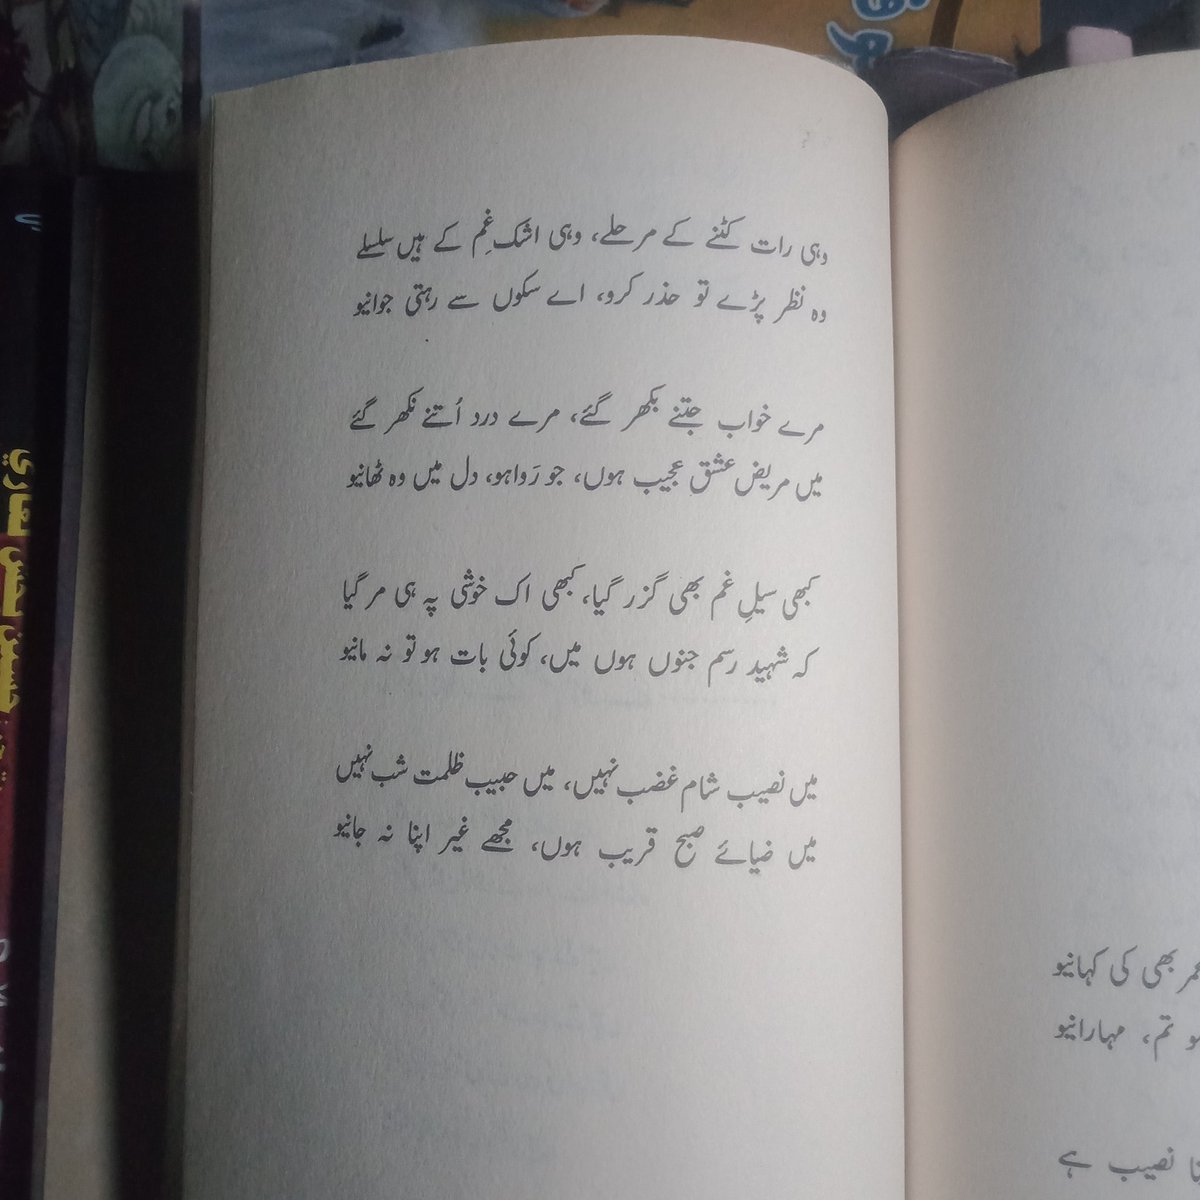 وہی رات کٹنے کے مرحلے، وہی اشکِ غم کے ہیں سلسلے
وہ نظر پڑے تو حذر کرو، اے سکوں سے رہتی جوانیو
مرے خواب جتنے بکھر گئے، مرے درد اُتنے نکھر گئے
میں مریض عشقِ عجیب ہوں، جو رَوا ہو، دل میں وہ ٹھانیو
کبھی سیلِ غم بھی گزر گیا، کبھی اک خوشی پہ ہی مر گیا
کہ شہید رسم جنوں ہوں میں، کوئی بات ہو تو نہ مانیو
میں نصیب شام غضب نہیں، میں حبیب ظلمت شب نہیں
میں ضیائے صبح قریب ہوں، مجھے غیر اپنا نہ جانیو
بھی کی کہانیو
تم، مہارانیو
نصیب ہے